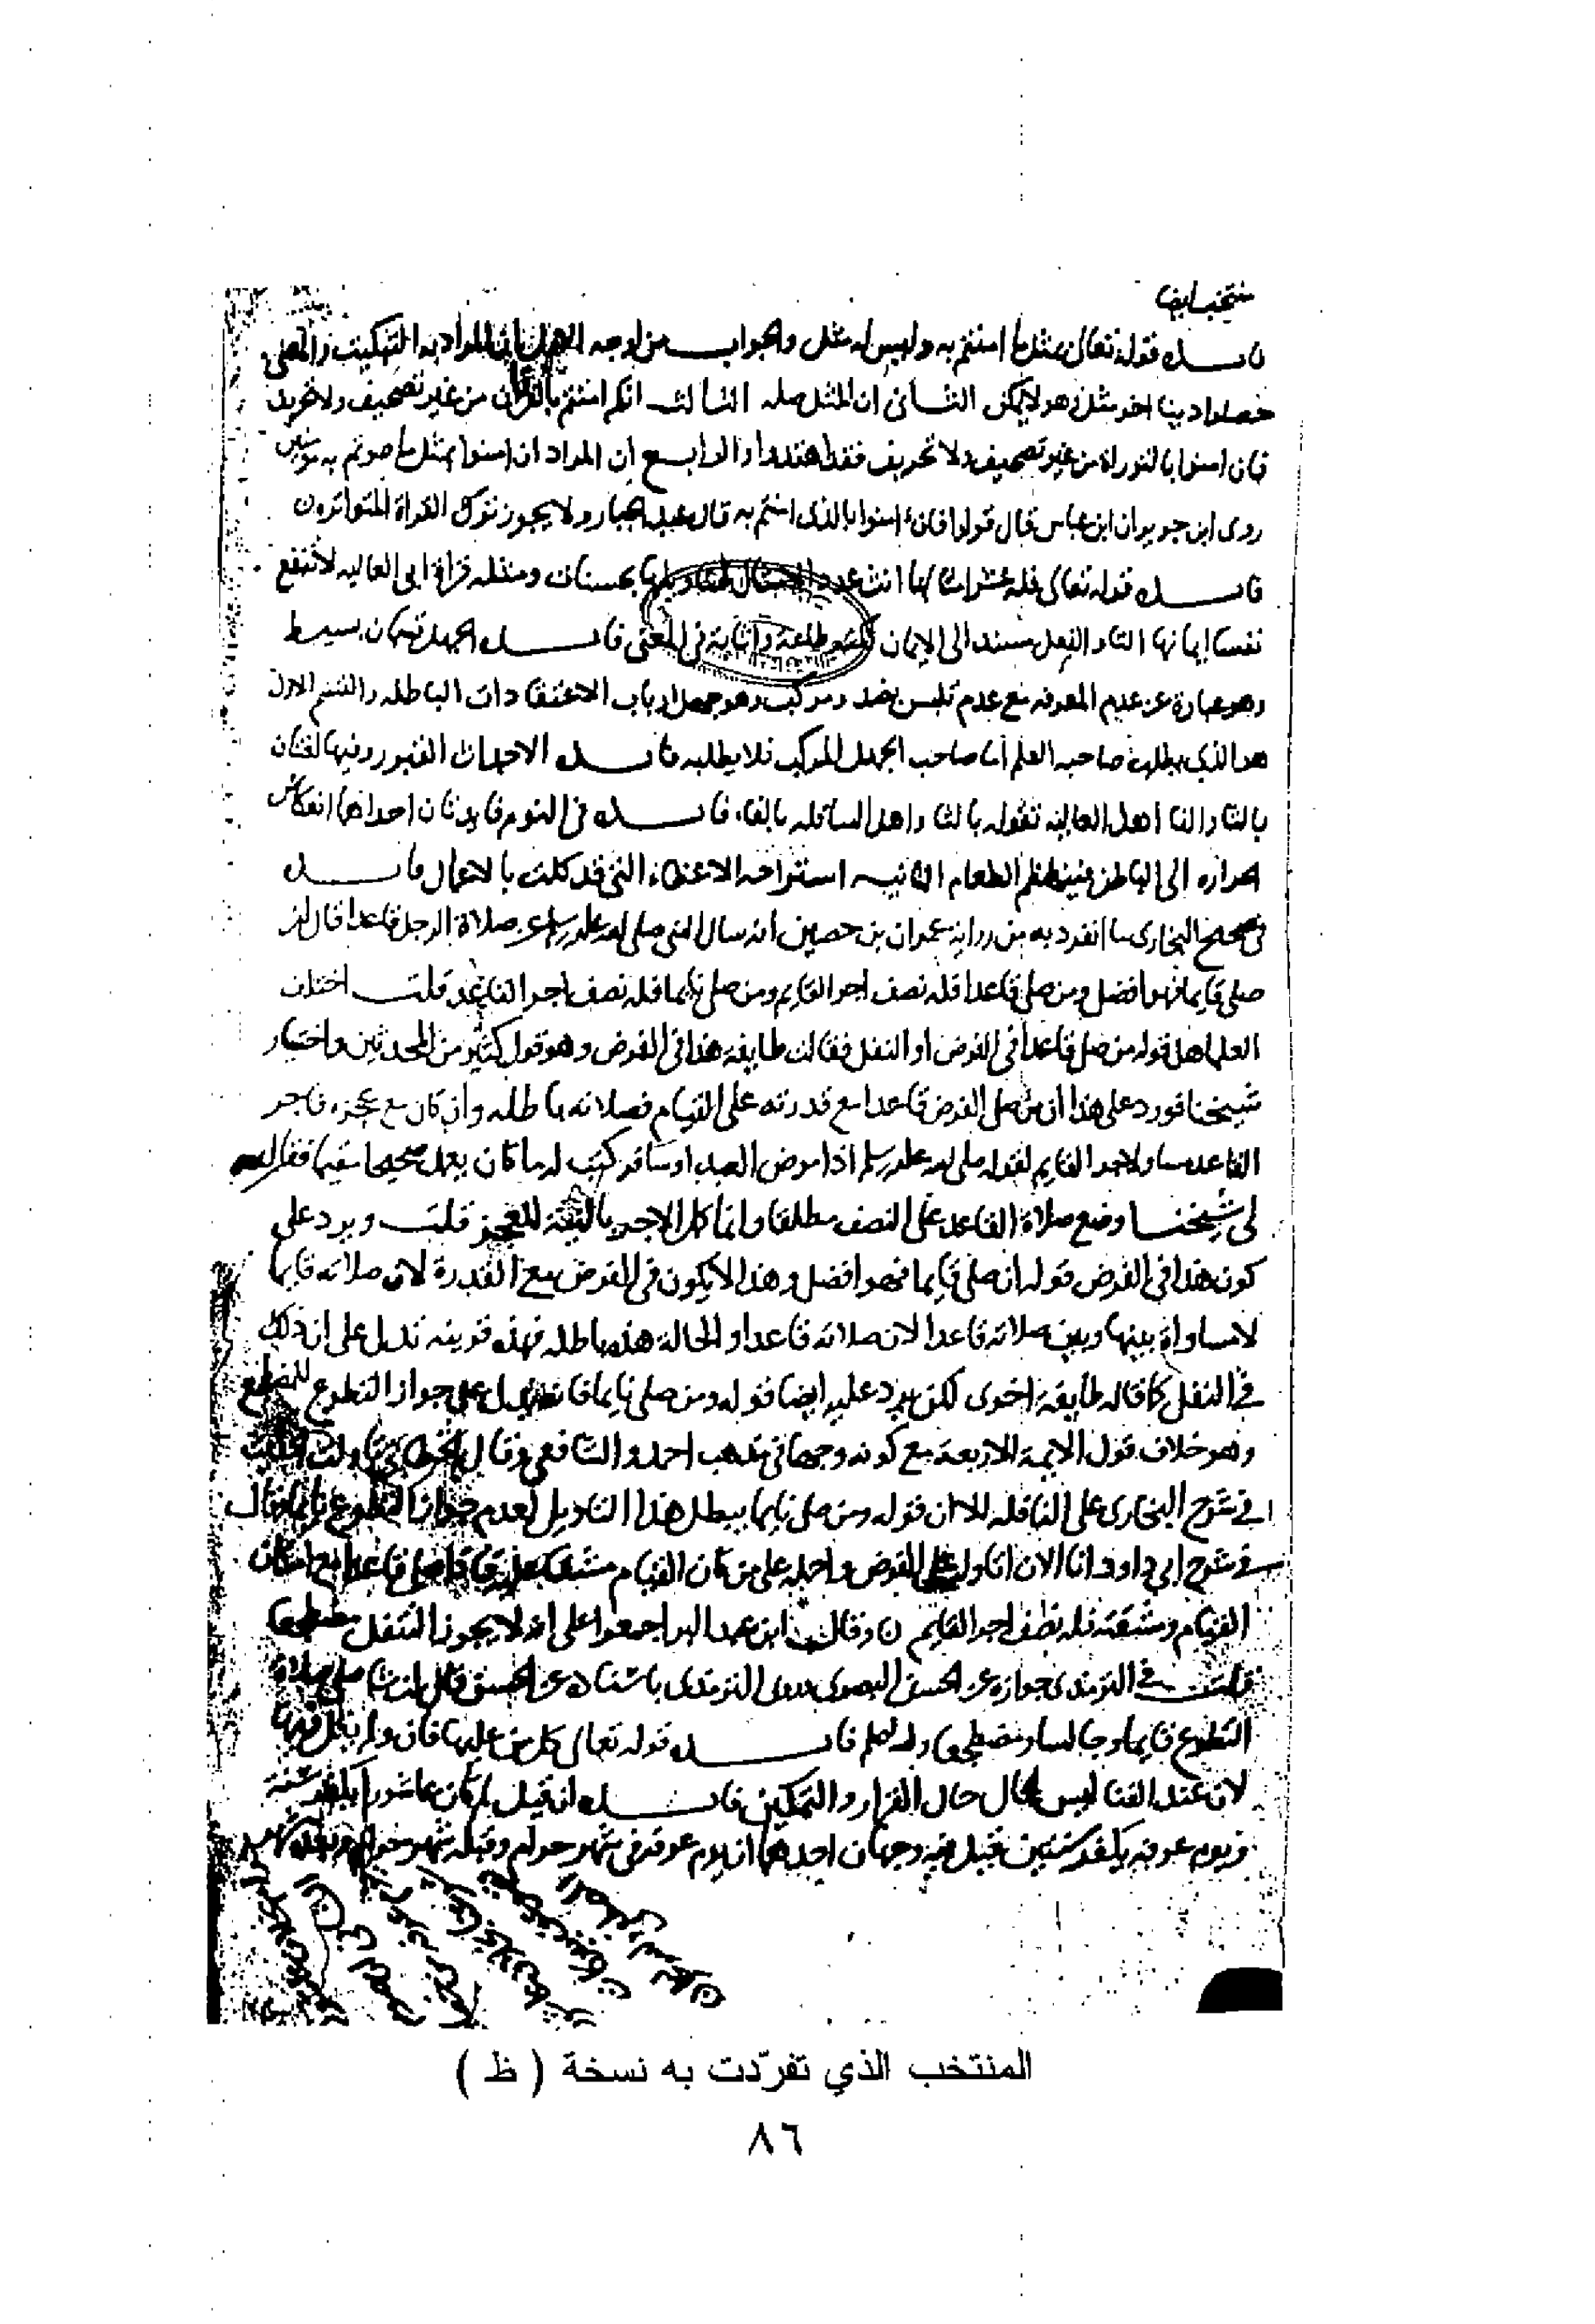 منتخب ايضا
فايـــده قوله تعالى بمثل ما امنتم به وليس له مثل والجواب من اوجه بان المراد به التبكيت والمعنى
حصلوا دينا اخر مثله وهو لا يمكن الثاني ان المثل صله الثالث انكم امنتم بالقران من غير تصحيف ولا تحريف
فان امنوا بالتوراة من غير تصحيف ولا تحريف فقد اهتدوا الرابع ان المراد ان امنوا بمثل ما صرتم به مومنين
روى ابن جرير ان ابن عباس قال قولوا فان امنوا بالذي امنتم به قال عبد الجبار ولا يجوز ترك القراة المتواترة
فايـــده قوله تعالى فله عشر امثالها انث عدد الامثال بحسنات ومثله قراة ابي العاليه لا تنفع
نفسا ايمانها التاء والفعل مسند الى الايمان طاعة وانابة في المعنى فايـــده الجهل قسمان بسيط
وهو عبارة عن عدم المعرفه مع عدم تلبس بضد ومركب وهو جهل ارباب الاعتقادات الباطله والقسم الاول
هو الذي يطلب صاحبه العلم اما صاحب الجهل المركب فلا يطلبه فايـــده الاجداث القبور وفيها لغتان
بالثا والفا اهل العاليه تقوله بالثا واهل السافله بالفاء فايـــده في النوم فايدتان احداهما انعكاس
الحراره الى الباطن فينهضم الطعام الثانيه استراحه الاعضاء التي قد كلت بالاعمال فايـــده
في صحيح البخاري مما انفرد به من رواية عمران بن حصين انه سال النبي صلى الله عليه وسلم عن صلاة الرجل قاعدا قال ان
صلى قايما فهو افضل ومن صلى قاعدا فله نصف اجر القايم ومن صلى نايما فله نصف اجر القاعد قلت اختلف
العلما هل قوله من صلى قاعدا في الفرض او النفل فقالت طايفة هذا في الفرض وهو قول كثير من المحدثين واختيار
شيخنا فورد على هذا ان من صلى الفرض قاعدا مع قدرته على القيام فصلاته باطله وان كان مع عجزه فاجر
القاعد مساو لاجر القايم لقوله صلى الله عليه وسلم اذا مرض العبد او سافر كتب له ما كان يعمل صحيحا مقيما فقال
لي شيخنا وضع صلاة القاعد على النصف مطلقا وانما كمل الاجر بالنية للعجز قلت ويرد على
كون هذا في الفرض قوله ان صلى قايما فهو افضل وهذا لا يكون في الفرض مع القدرة لان صلاته قايما
لا مساواة بينها وبين صلاته قاعدا لان صلاته قاعدا والحالة هذه باطله فهذه قرينه تدل على ان ذلك
في النفل كما قاله طايفة اخرى لكن يرد عليه ايضا قوله ومن صلى نايما فانه يدل على جواز التطوع للمضطجع
وهو خلاف قول الايمة الاربعة مع كونه وجها في مذهب احمد والشافعي وقال الخطابي
في شرح البخاري على النافله الا ان قوله ومن صلى نايما يبطل هذا التاويل لعدم جواز التطوع نايما وقال
في شرح ابي داود انا الان اتاوله على الفرض واحمله على من كان القيام مشقا عليه فاذا صلى قاعدا مع امكان
القيام ومشقته فله نصف اجر القايم وقال ابن عبد البر اجمعوا على انه لا يجوز التنفل مضطجعا
قلت في الترمذي جوازه عن الحسن البصري روى الترمذي باسناده عن الحسن قال ان شا صلى صلاة
التطوع قايما وجالسا ومضطجعا والله اعلم فايـــده قوله تعالى كل من عليها فان ولم يقل فيها
لان عند الفنا ليس الحال حال القرار والتمكين فايـــده ان قيل لم كان عاشورا يكفر سنة
ويوم عرفه يكفر سنتين قيل فيه وجهان احدهما ان يوم عرفة في شهر حرام وقبله شهر حرام وبعده شهر
المنتخب الذي تفرّدت به نسخة ( ظ )
٨٦